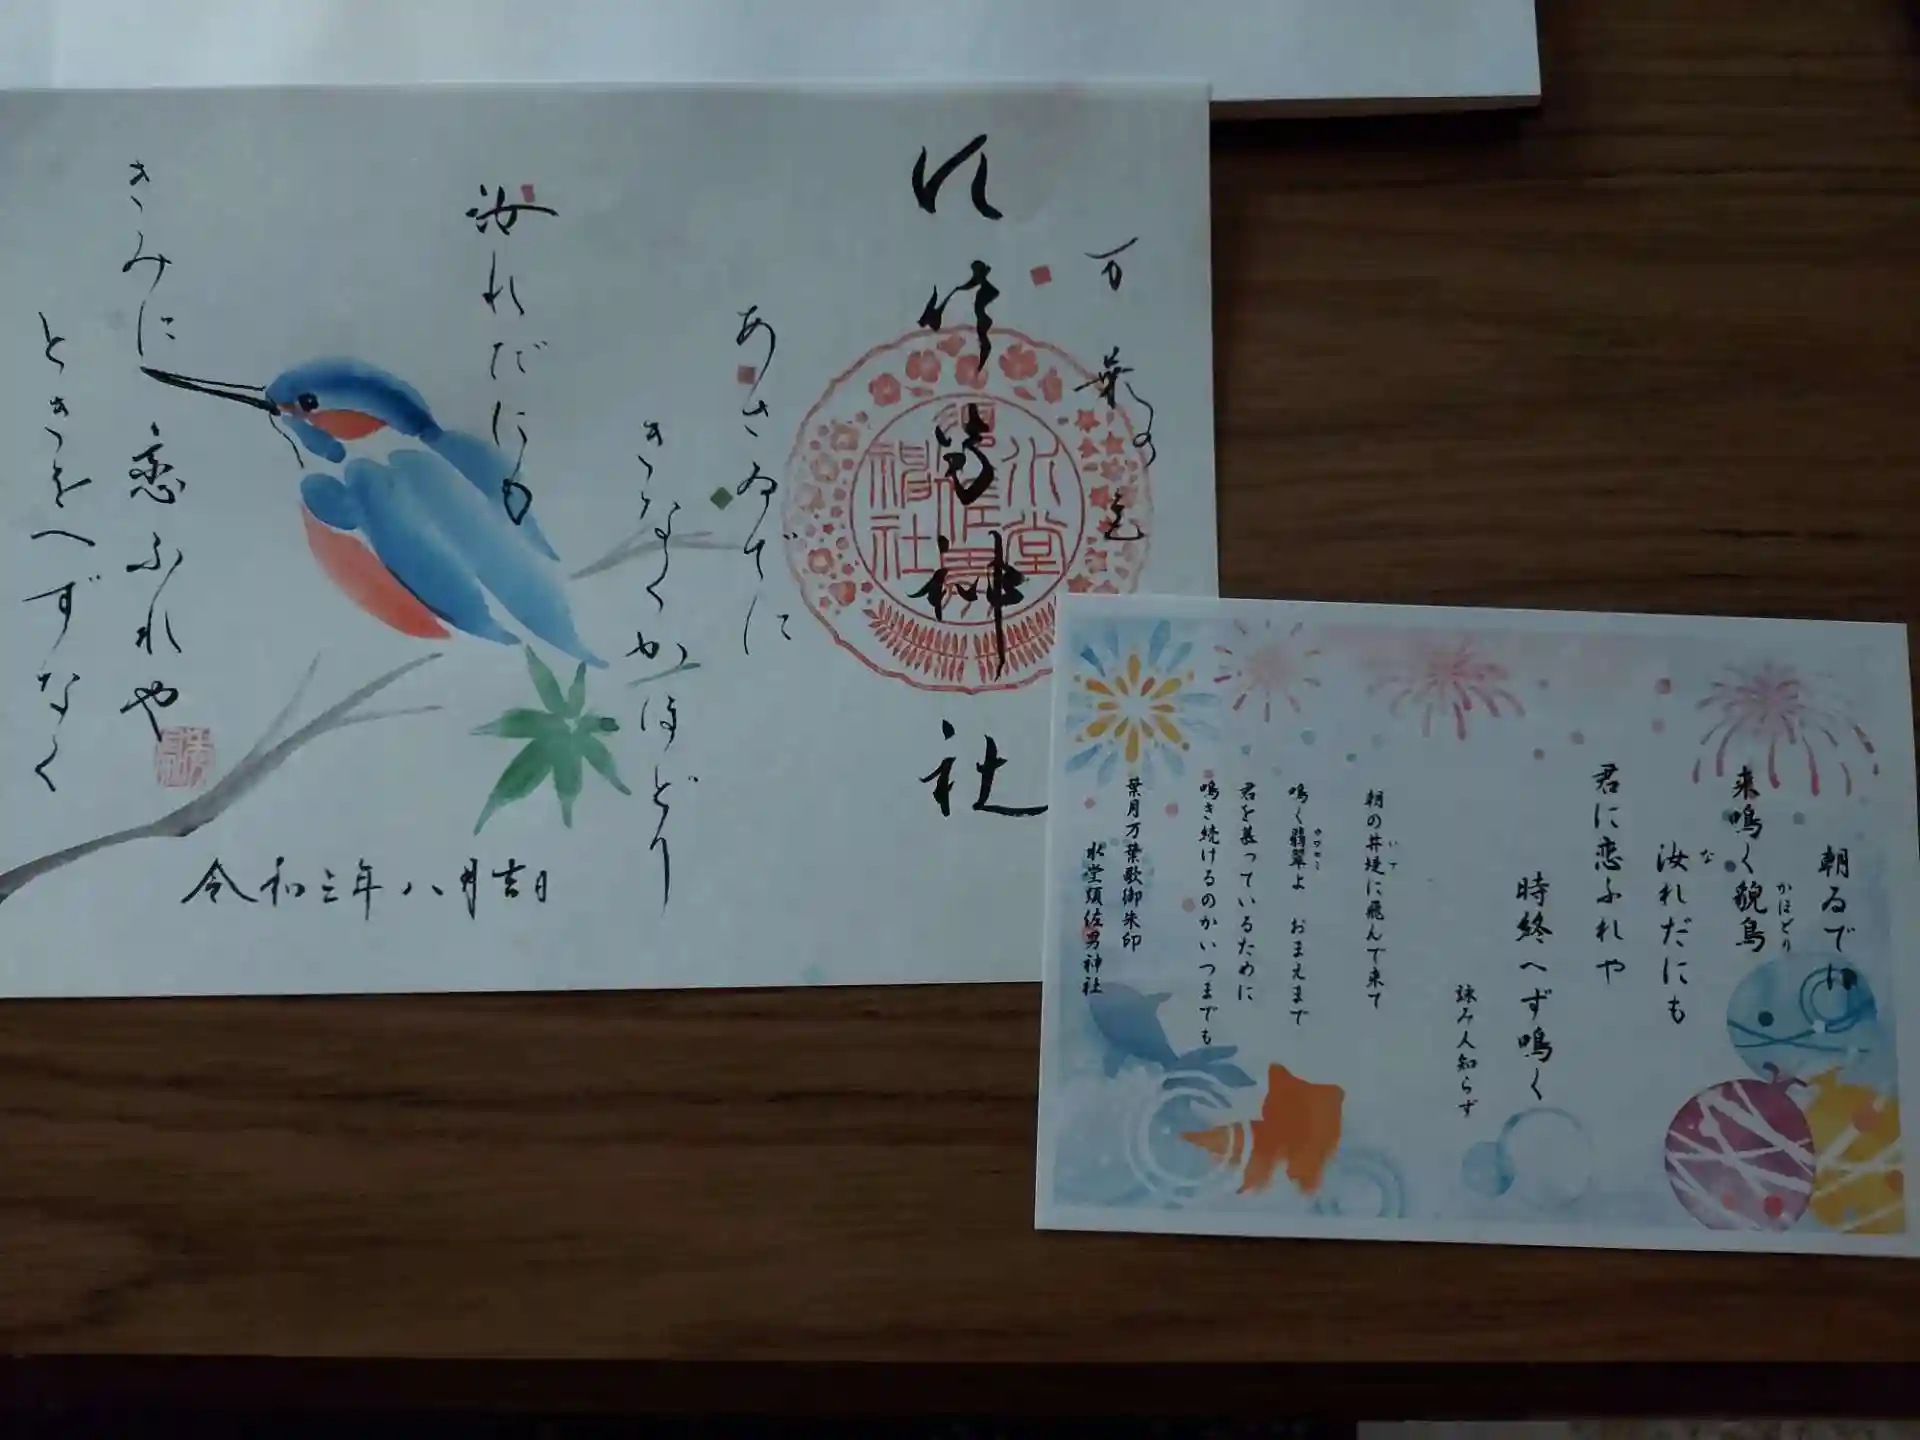 万葉の
須佐男神社
水堂
須佐男
神社
あさゐでに
きなくかほどり
汝れだにも
きみに恋ふれや
ときをへずなく
令和三年八月吉日
朝ゐでに
来鳴く貌鳥
かほどり
汝れだにも
な
君に恋ふれや
時終へず鳴く
詠み人知らず
朝の井堤に飛んで来て
いで
鳴く翡翠よ おまえまで
カワセミ
君を慕っているために
鳴き続けるのかいつまでも
葉月万葉歌御朱印
水堂須佐男神社